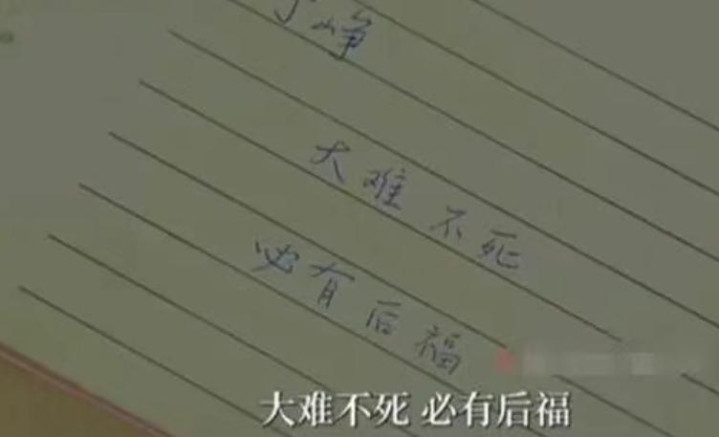 峥
大难不死
必有后福
大难不死 必有后福